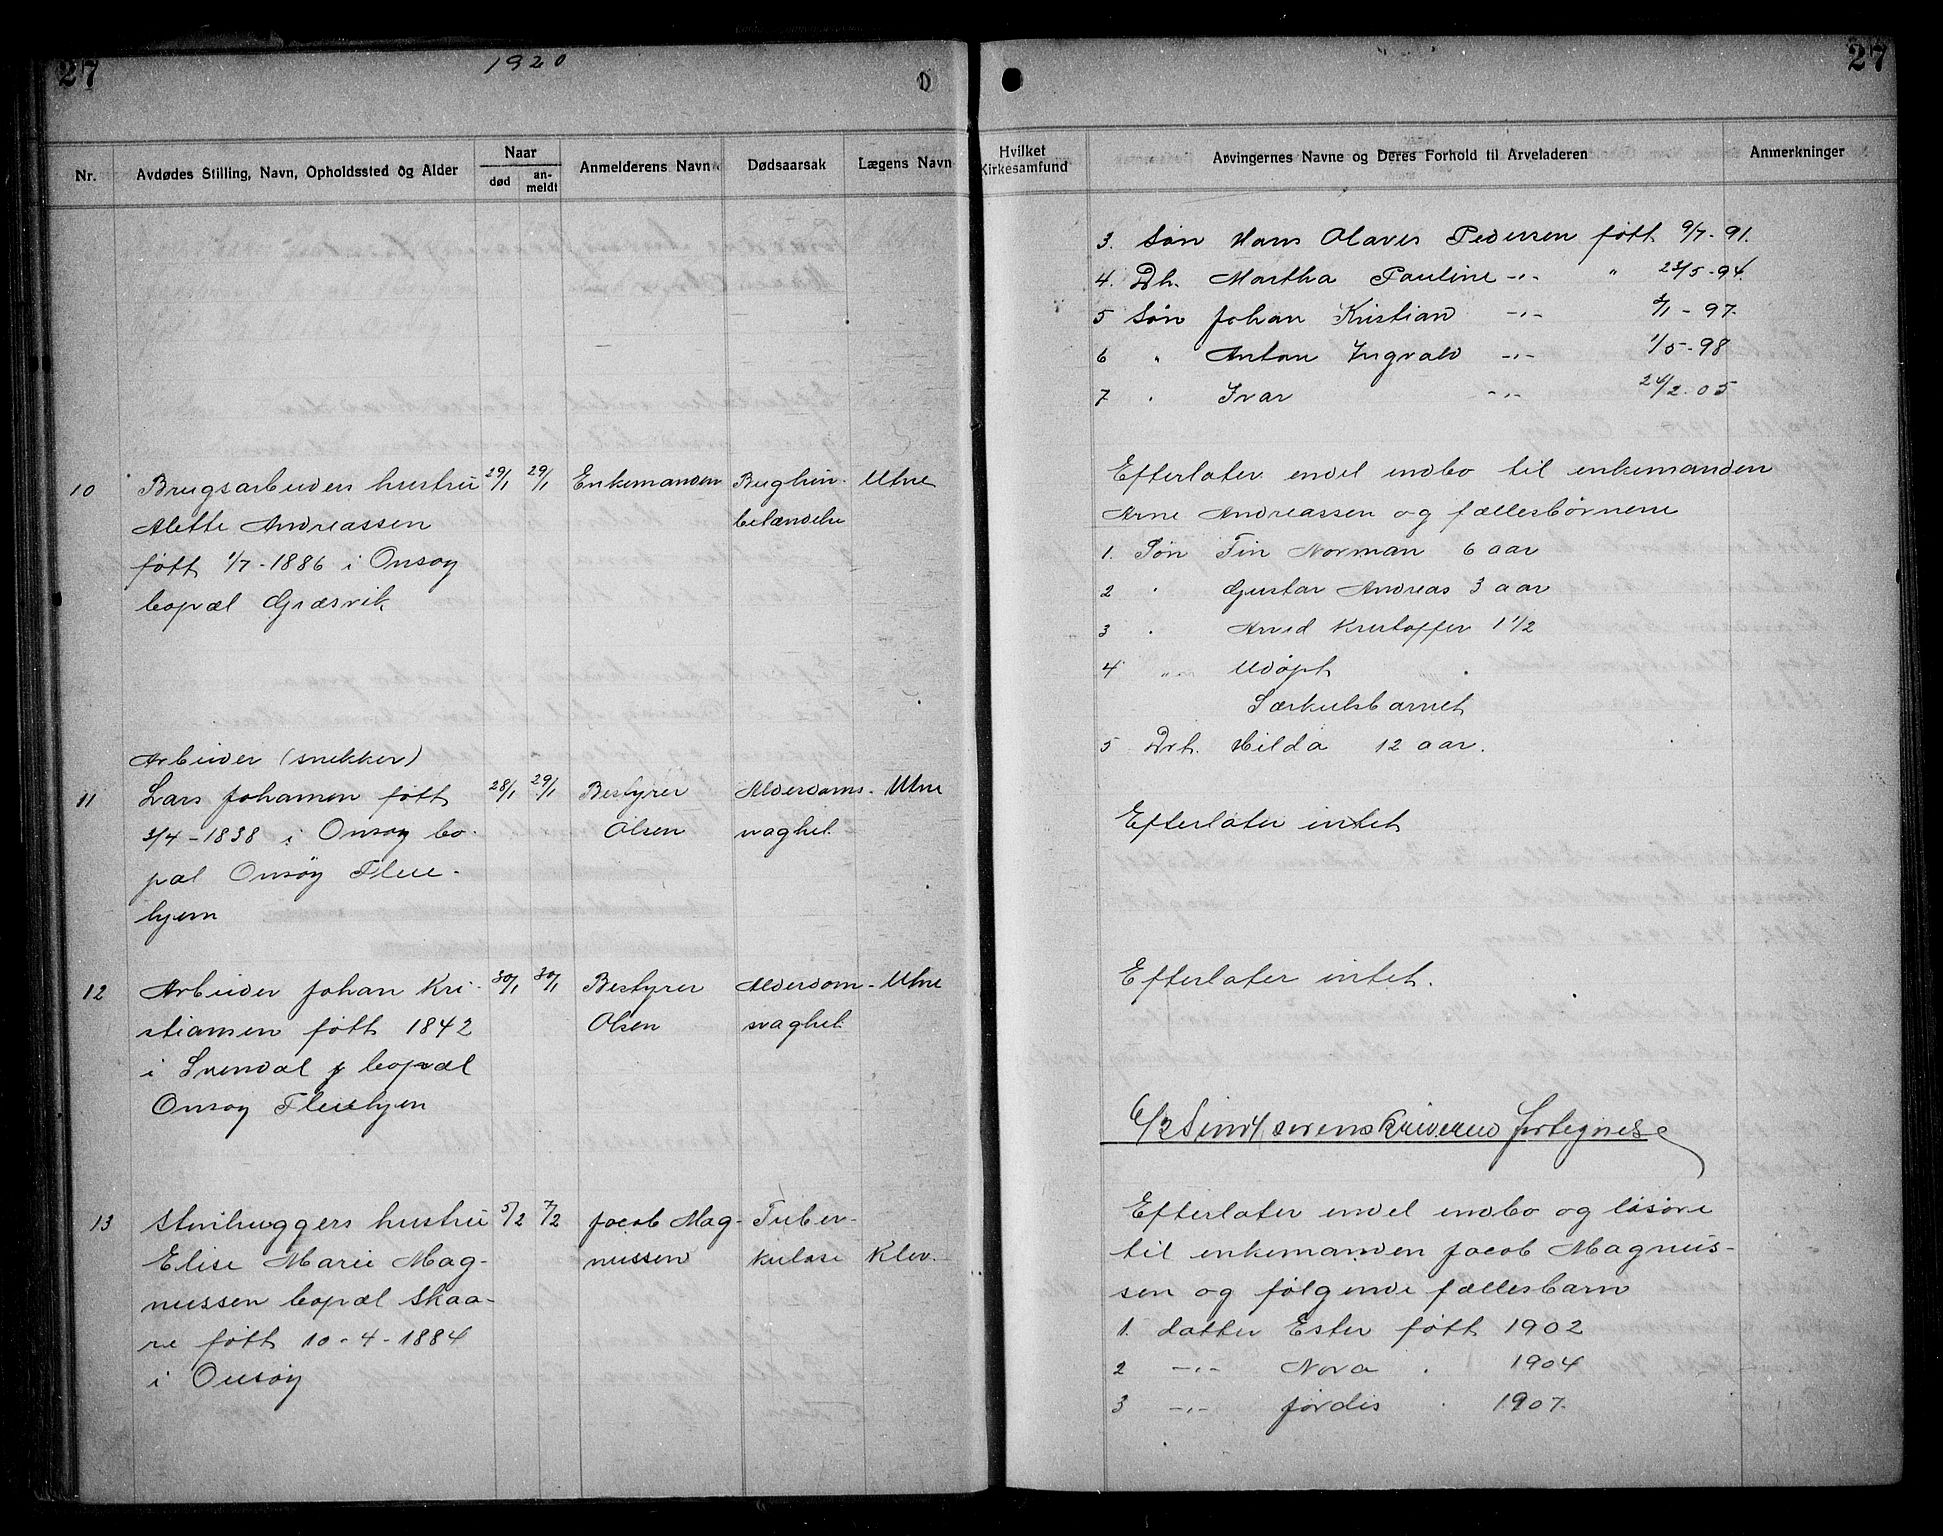 27
1920
D
27
Nr.
Avdødes Stilling, Navn, Opholdssted og Alder
Naar
død
an-
meldt
Anmelderens Navn
Dødsaarsak
Lægens Navn
Hvilket
Kirkesamfund
Arvingernes Navne og Deres Forhold til Arveladeren
Anmerkninger
3. Søn Hans Olaves Pedersen født 9/7-91.
4. Dh. Martha Pauline -"- " 23/5-94.
5 Søn Johan Kristian -"- 2/1-97.
6 " Anton Ingvald -"- 1/5-98
7 " Ivar -"- 24/2.05
10
Brugsarbeiders hustru
Alette Andreassen
født 1/7-1886 i Onsøy
bopæl Græsvik
29/1
29/1
Enkemanden
Bughin-
betændelse
Utne
Efterlater endel indbo til enkemanden
Arne Andreassen og fællesbørnene
1. Søn Fin Norman 6 aar
2 " Gustav Andreas 3 aar
3 " Arvid Kristoffer 1 1/2
4 " Udøpt
Særkulsbarnet
5 Dtr. Hilda 12 aar.
11
Arbeider (snekker)
Lars Johansen født
3/4-1838 i Onsøy bo-
pæl Onsøy Pleie-
hjem
28/1
29/1
Bestyrer
Olsen
Alderdoms-
svaghet
Utne
Efterlater intet
12
Arbeider Johan Kri-
stiansen født 1842
i Svendal bopæl
Onsøy Pleiehjem
30/1
30/1
Bestyrer
Olsen
Alderdom-
svaghet
Utne
Efterlater intet.
6/2 Sendt sorenskriveren fortegnelse
13
Stenhuggers hustru
Elise Marie Mag-
nussen bopæl Skaa-
re født 10-4-1884
i Onsøy
5/2
7/2
Jacob Mag-
nussen
Tuber-
kulose
Klev.
Efterlater endel indbo og løsøre
til enkemanden Jacob Magnus-
sen og følgende fællesbarn
1. datter Ester født 1902
2 -"- Nora " 1904
3 -"- Jordis " 1907.